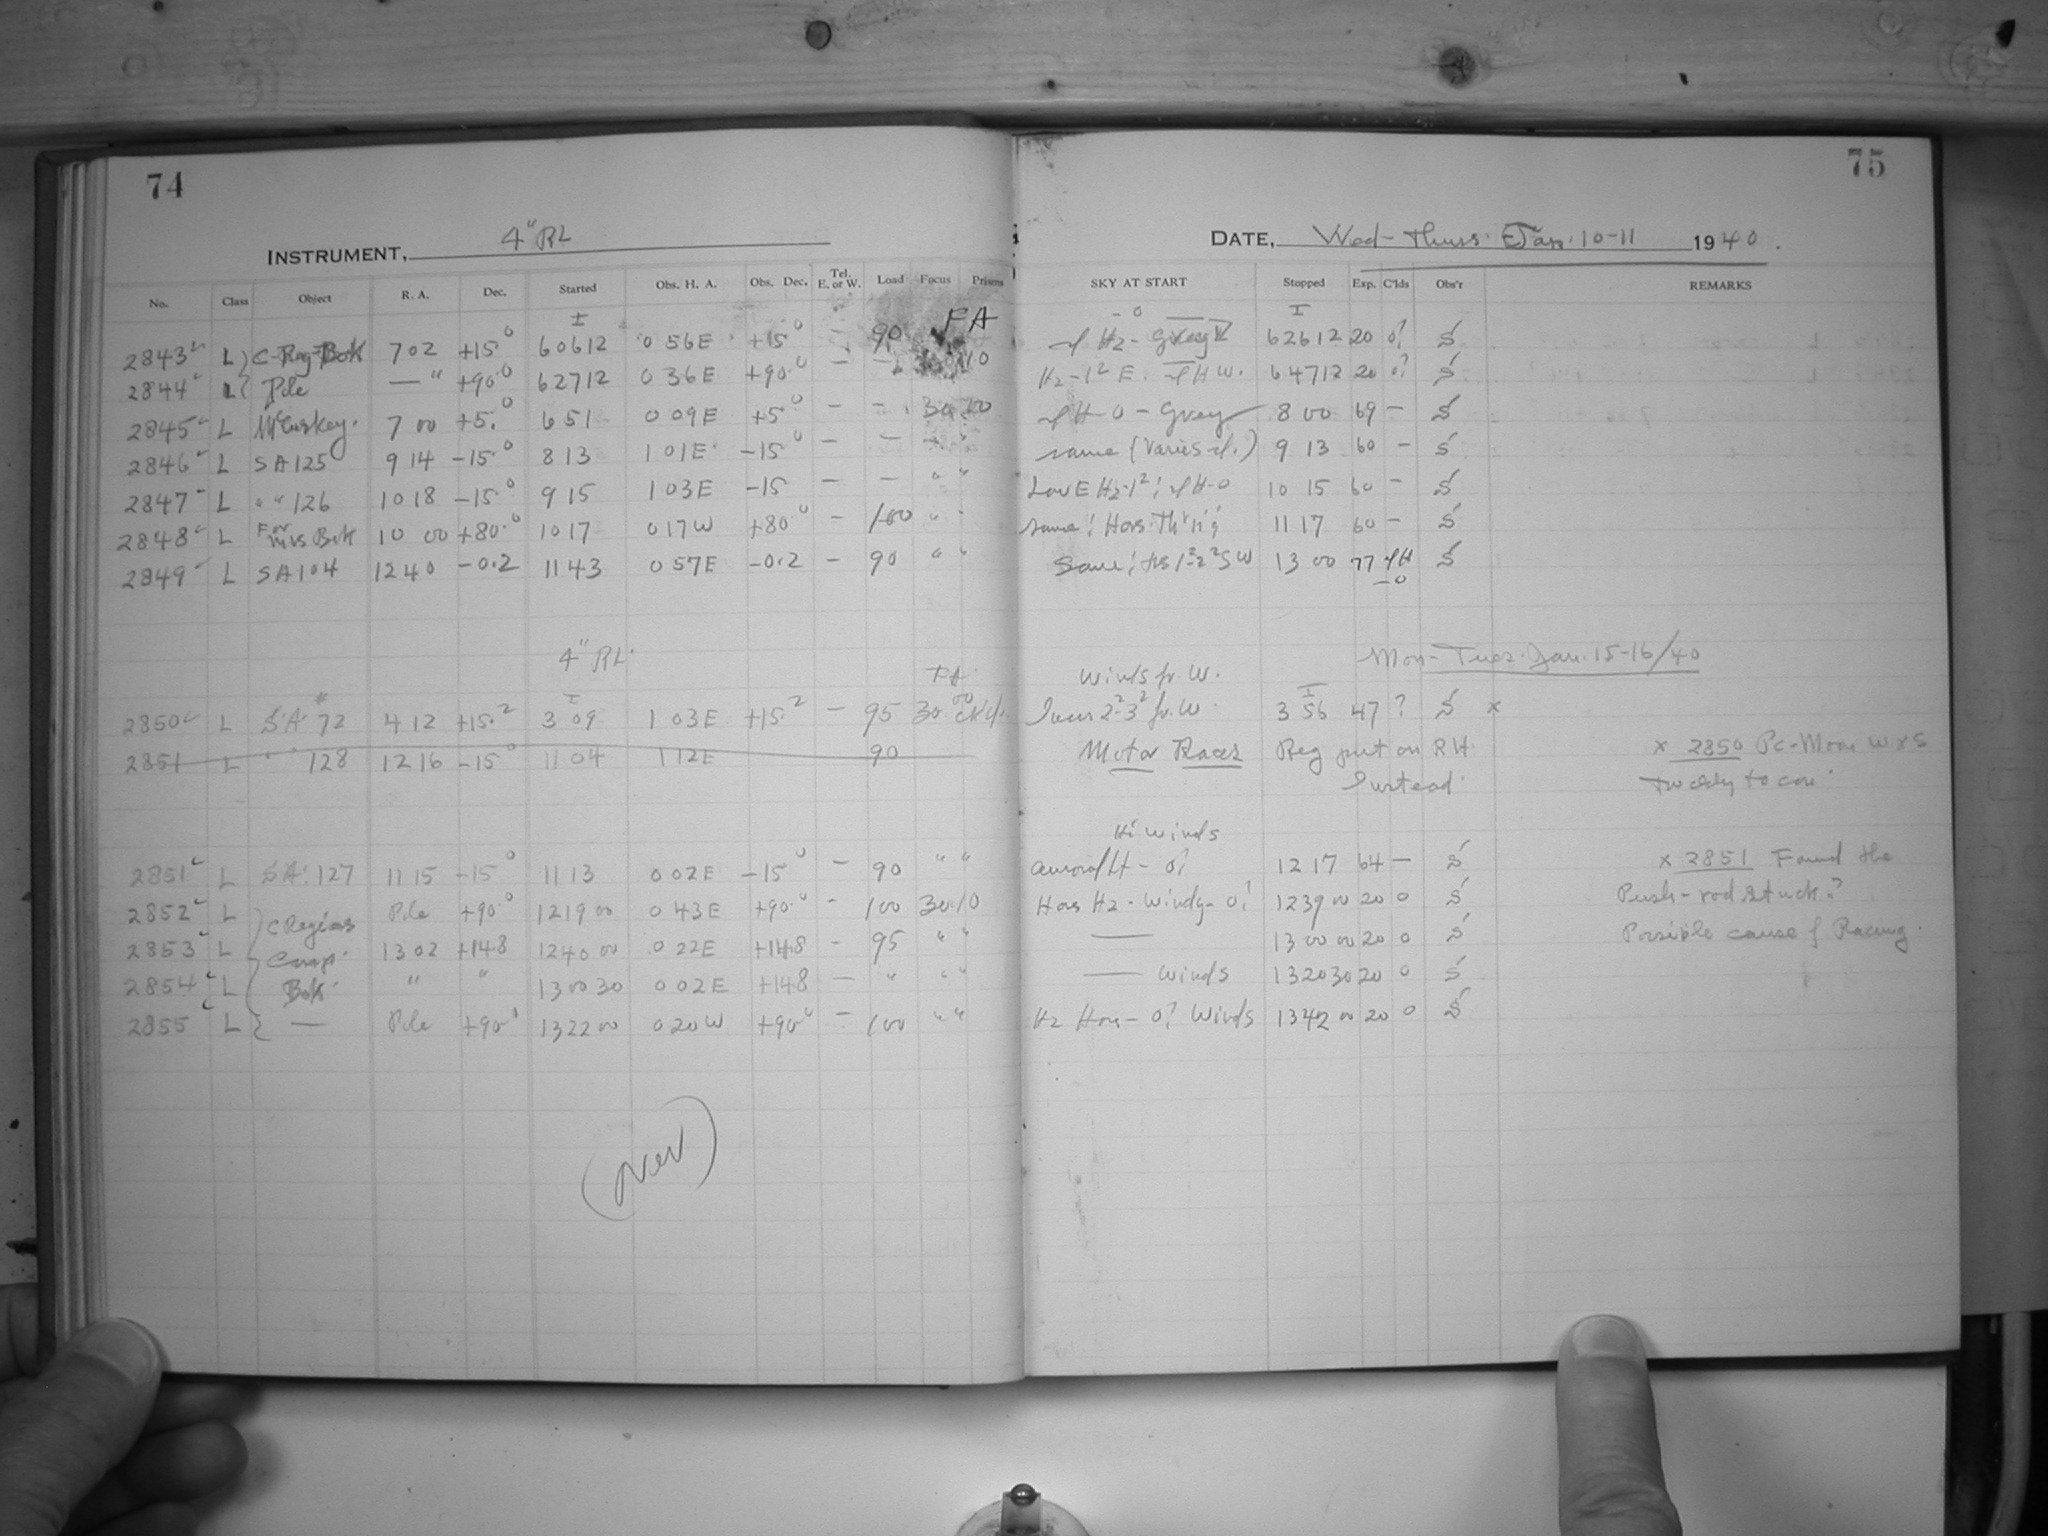 74
INSTRUMENT, 4" RL
No. Class Object R. A. Dec. Started Obs. H. A. Obs. Dec. Tel. E. or W. Load Focus Prisms
I FA
2843 L C-Reg-Bok 7 02 +15° 6 06 12 0 56 E +15° - 90
2844 L Pole — " +90° 6 27 12 0 36 E +90° - - 10
2845 L McCuskey. 7 00 +5° 6 51 0 09 E +5° - - 30 00
2846 L SA 125 9 14 -15° 8 13 1 01 E -15° - - " "
2847 L " " 126 10 18 -15° 9 15 1 03 E -15 - - " "
2848 L For Mrs Bok 10 00 +80° 10 17 0 17 W +80° - 100 " "
2849 L SA 104 12 40 -0.2 11 43 0 57 E -0.2 - 90 " "
4" RL.
FA
I
2850 L SA # 72 4 12 +15.2 3 09 1 03 E +15.2 - 95 30 00 ck'd.
2851 L " 128 12 16 -15° 11 04 1 12 E 90
2851 L SA. 127 11 15 -15° 11 13 0 02 E -15° - 90 " "
2852 L C Regions Pole +90° 12 19 00 0 43 E +90° - 100 30.10
2853 L Comp. 13 02 +14.8 12 40 00 0 22 E +14.8 - 95 " "
2854 L Bok. " " 13 00 30 0 02 E +14.8 - " " "
2855 L — Pole +90° 13 22 00 0 20 W +90° - 100 " "
(over)
75
DATE, Wed-Thurs. Jan. 10-11 1940.
SKY AT START Stopped Exp. C'lds Obs'r REMARKS
I
Hz - Grey 6 26 12 20 0? S
Hz - 1² E. H W. 6 47 12 20 0? S
H - 0 - Grey 8 00 69 - S
same (Varies) 9 13 60 - S
Low E Hz - 1²; H-0 10 15 60 - S
same; 11 17 60 - S
Same; 1²-2² SW 13 00 77 H-0 S
Mon-Tues. Jan. 15-16/40
Winds fr. W.
I
2²-3² fr. W. 3 56 47 ? S x
Motor Races Reg put on RH x 2850
Instead.
Hi winds
H - 0? 12 17 64 - S x 2851 Found the
Hors Hz - Windy - 0? 12 39 00 20 0 S Push-rod stuck?
— 13 00 00 20 0 S Possible cause of Racing.
— winds 13 20 30 20 0 S
Hz Hors - 0? Winds 13 42 00 20 0 S